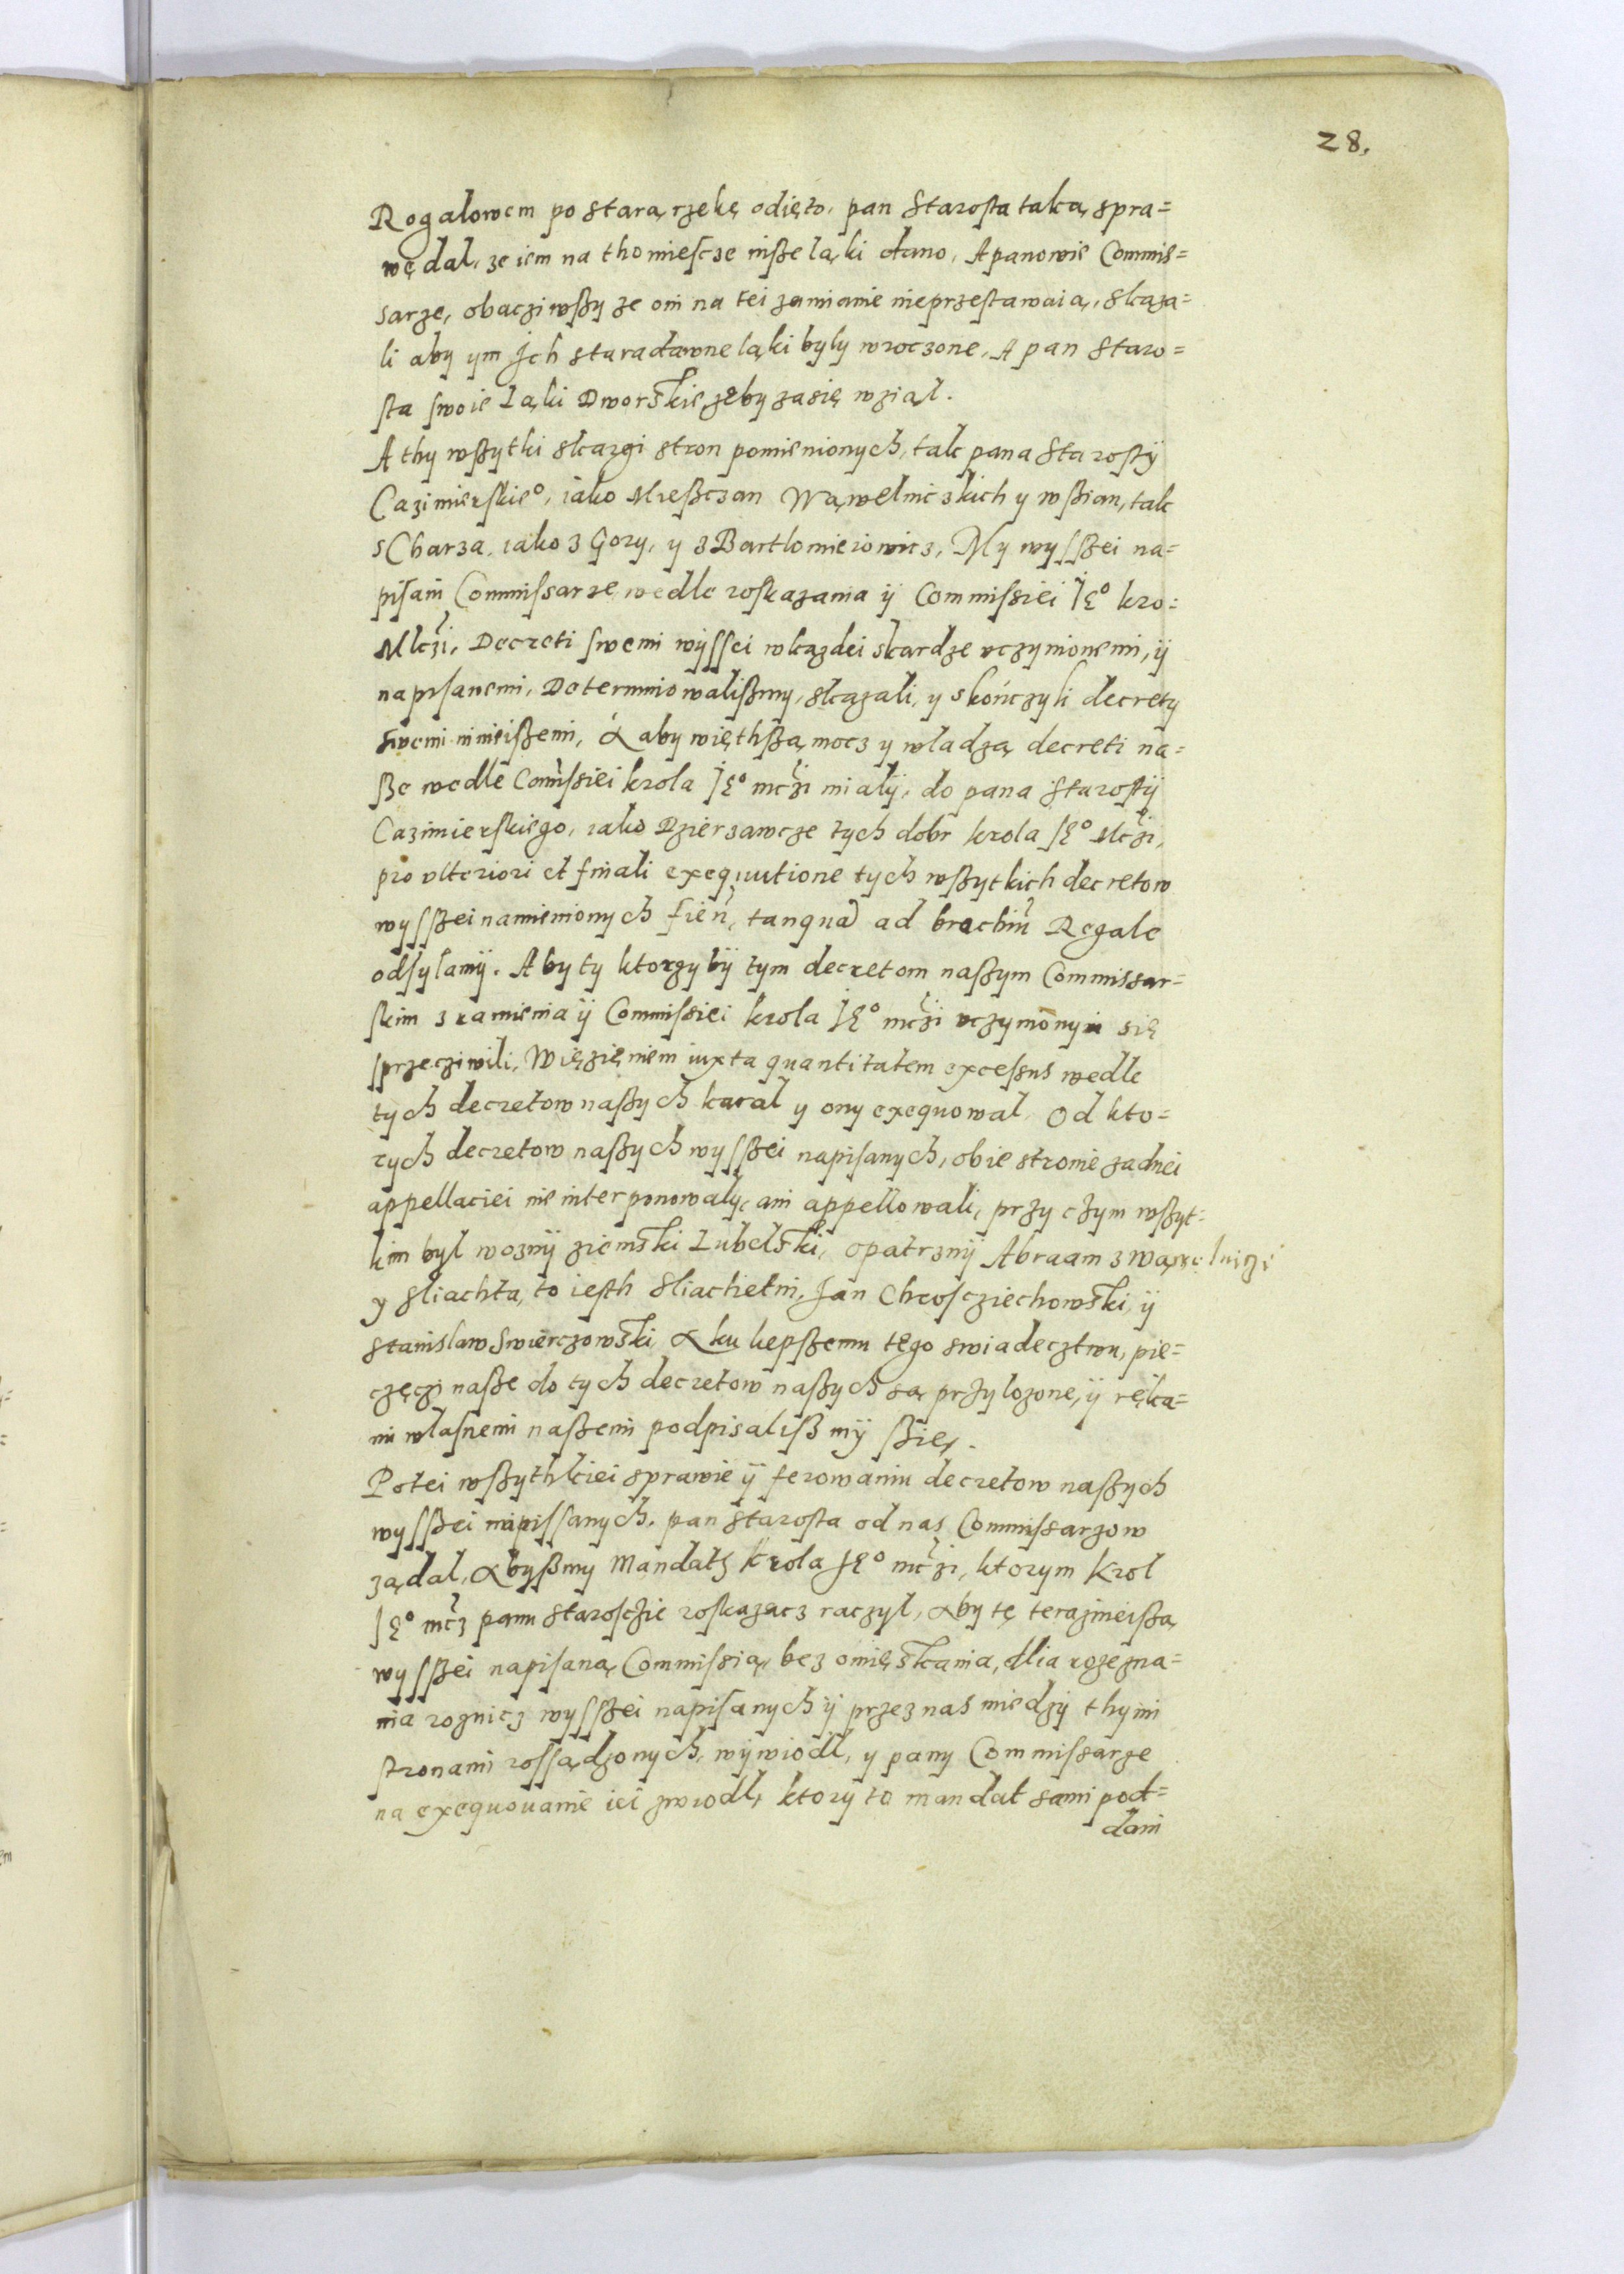 28.
Rogalowem po starą rzekę odięto, pan Starosta taką spra=
wę dal, ze iem na tho miescze insze ląki dano, A panowie Commis=
sarze, obacziwszy ze oni na tei zamianie nieprzestawaią, skaza=
li aby ym Jch staradawne ląki byly wroczone, A pan Staro=
sta swoie Ląki Dworskie zeby zasię wziąl.
A thy wszytki skargi stron pomienionych, tak pana Starosty
Cazimierskieo, iako Miesczan Wąwelnickich y wszian, tak
s Charza, iako z Gory, y z Bartlomieiowicz, My wysszei na=
pisani Commissarze wedle roskazania ÿ Commissiei Jeo kro=
Mlczi, Decreti swemi wÿssei w kazdei skardze uczynionemi, ÿ
napisanemi, Determinowalismy, skazali, y skończyli decrety
swemi ninieiszemi, A aby więthszą mocz y wladzą decreti na=
sze wedle Comissiei krola Jeo mczi mialÿ, do pana Starostÿ
Cazimierskiego, iako Dzierzawcze tych dobr krola Jeo Mczi,
pro ulteriori et finali exequutione tych wszytkich decretow
wysszei namienionych fien, tanqua ad brachiu Regale
odsylamÿ. Aby ty ktorzy bÿ tym decretom naszym Commissar=
skim z ramienia ÿ Commissiei krola Jeo mczi uczynionym się
sprzecziwili, Więzieniem iuxta quantitatem excessus wedle
tych decretow naszych karal y ony exequowal, Od kto=
rych decretow naszych wysszei napisanych, obie stronie zadnei
appellaciei nie interponowalÿ, ani appellowali, przy czym wszyt=
kim byl woznÿ ziemski Lubelski, opatrznÿ Abraam z Wąwelnizi
y sliachta, to iesth sliachetni, Jan Chrosczie chowski, ÿ
Stanislaw Swierczowski, A ku liepszemu tego swiadecztwu, pie=
częczi nasze do tych decretow naszych są przylozone, ÿ ręka=
mi wlasnemi naszemi podpisalisz mÿ szię.
Po tei wszythkiei sprawie ÿ ferowaniu decretow naszych
wysszei napissanych, pan Starosta od nas Commissarzow
ządal, Abyszmy Mandath krola Jeo mczi, ktorym Krol
Jeo mcz panu Starosczie roskazacz raczyl, aby tę terazniejszą
wysszei napisaną Commissią, bez omięskania, dlia rozezna=
nia roznicz wysszei napisanych ÿ przez nas miedzÿ thymi
stronami rossądzonych, wÿwiodl, y pany Commissarze
na exequouanie iei zwiodl, ktorÿ to mandat sami pod=
dani